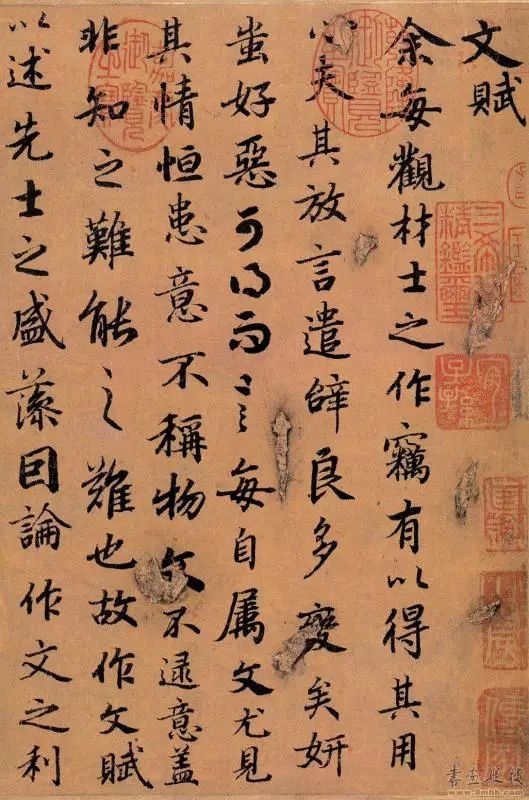 文賦
余每觀材士之作竊有以得其用
心夫其放言遣辭良多變矣妍
蚩好惡可得而言每自属文尤見
其情恒患意不稱物文不逮意盖
非知之難能之難也故作文賦
以述先士之盛藻因論作文之利
三希堂精鑑璽
宜子孫
www.8mhh.com